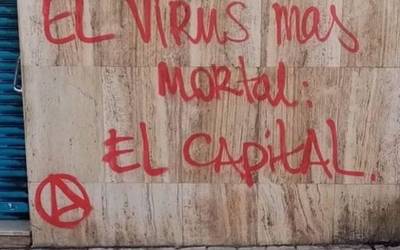 EL VIRUS mas
mortal:
EL CAPITAL.